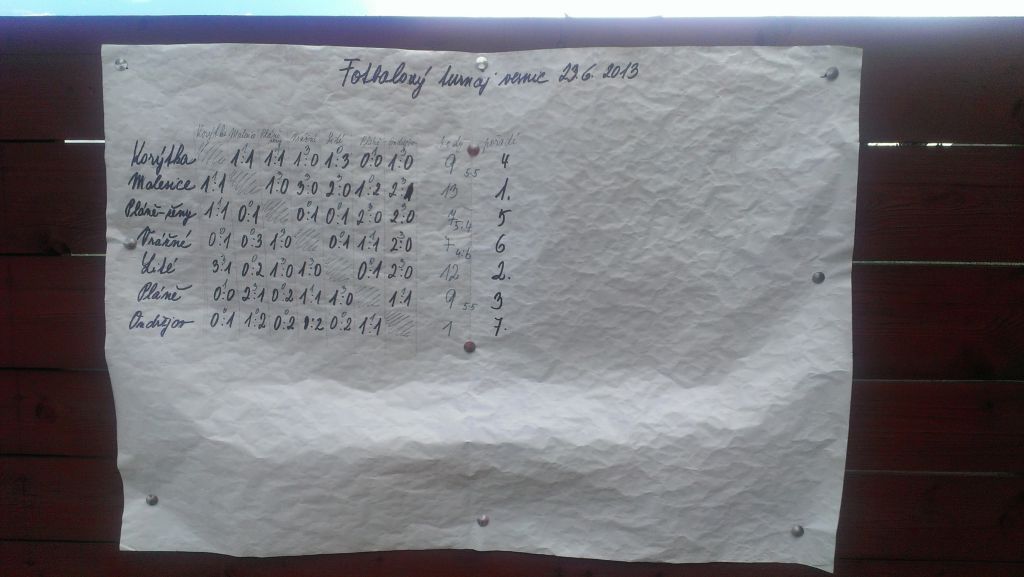 Fotbalový turnaj vesnic 29.6. 2013
Korýtka Malenice Pláně-ženy Vrážné Lité Pláně Ondřejov body pořadí
Korýtka 1:1 1:1 1:0 1:3 0:0 1:0 9 5:5 4
Malenice 1:1 1:0 3:0 2:0 1:2 2:1 13 1.
Pláně-ženy 1:1 0:1 0:1 0:1 2:0 2:0 7 5:4 5
Vrážné 0:1 0:3 1:0 0:1 1:1 2:0 7 4:6 6
Lité 3:1 0:2 1:0 1:0 0:1 2:0 12 2.
Pláně 0:0 2:1 0:2 1:1 1:0 1:1 9 5:5 3
Ondřejov 0:1 1:2 0:2 0:2 0:2 1:1 1 7.